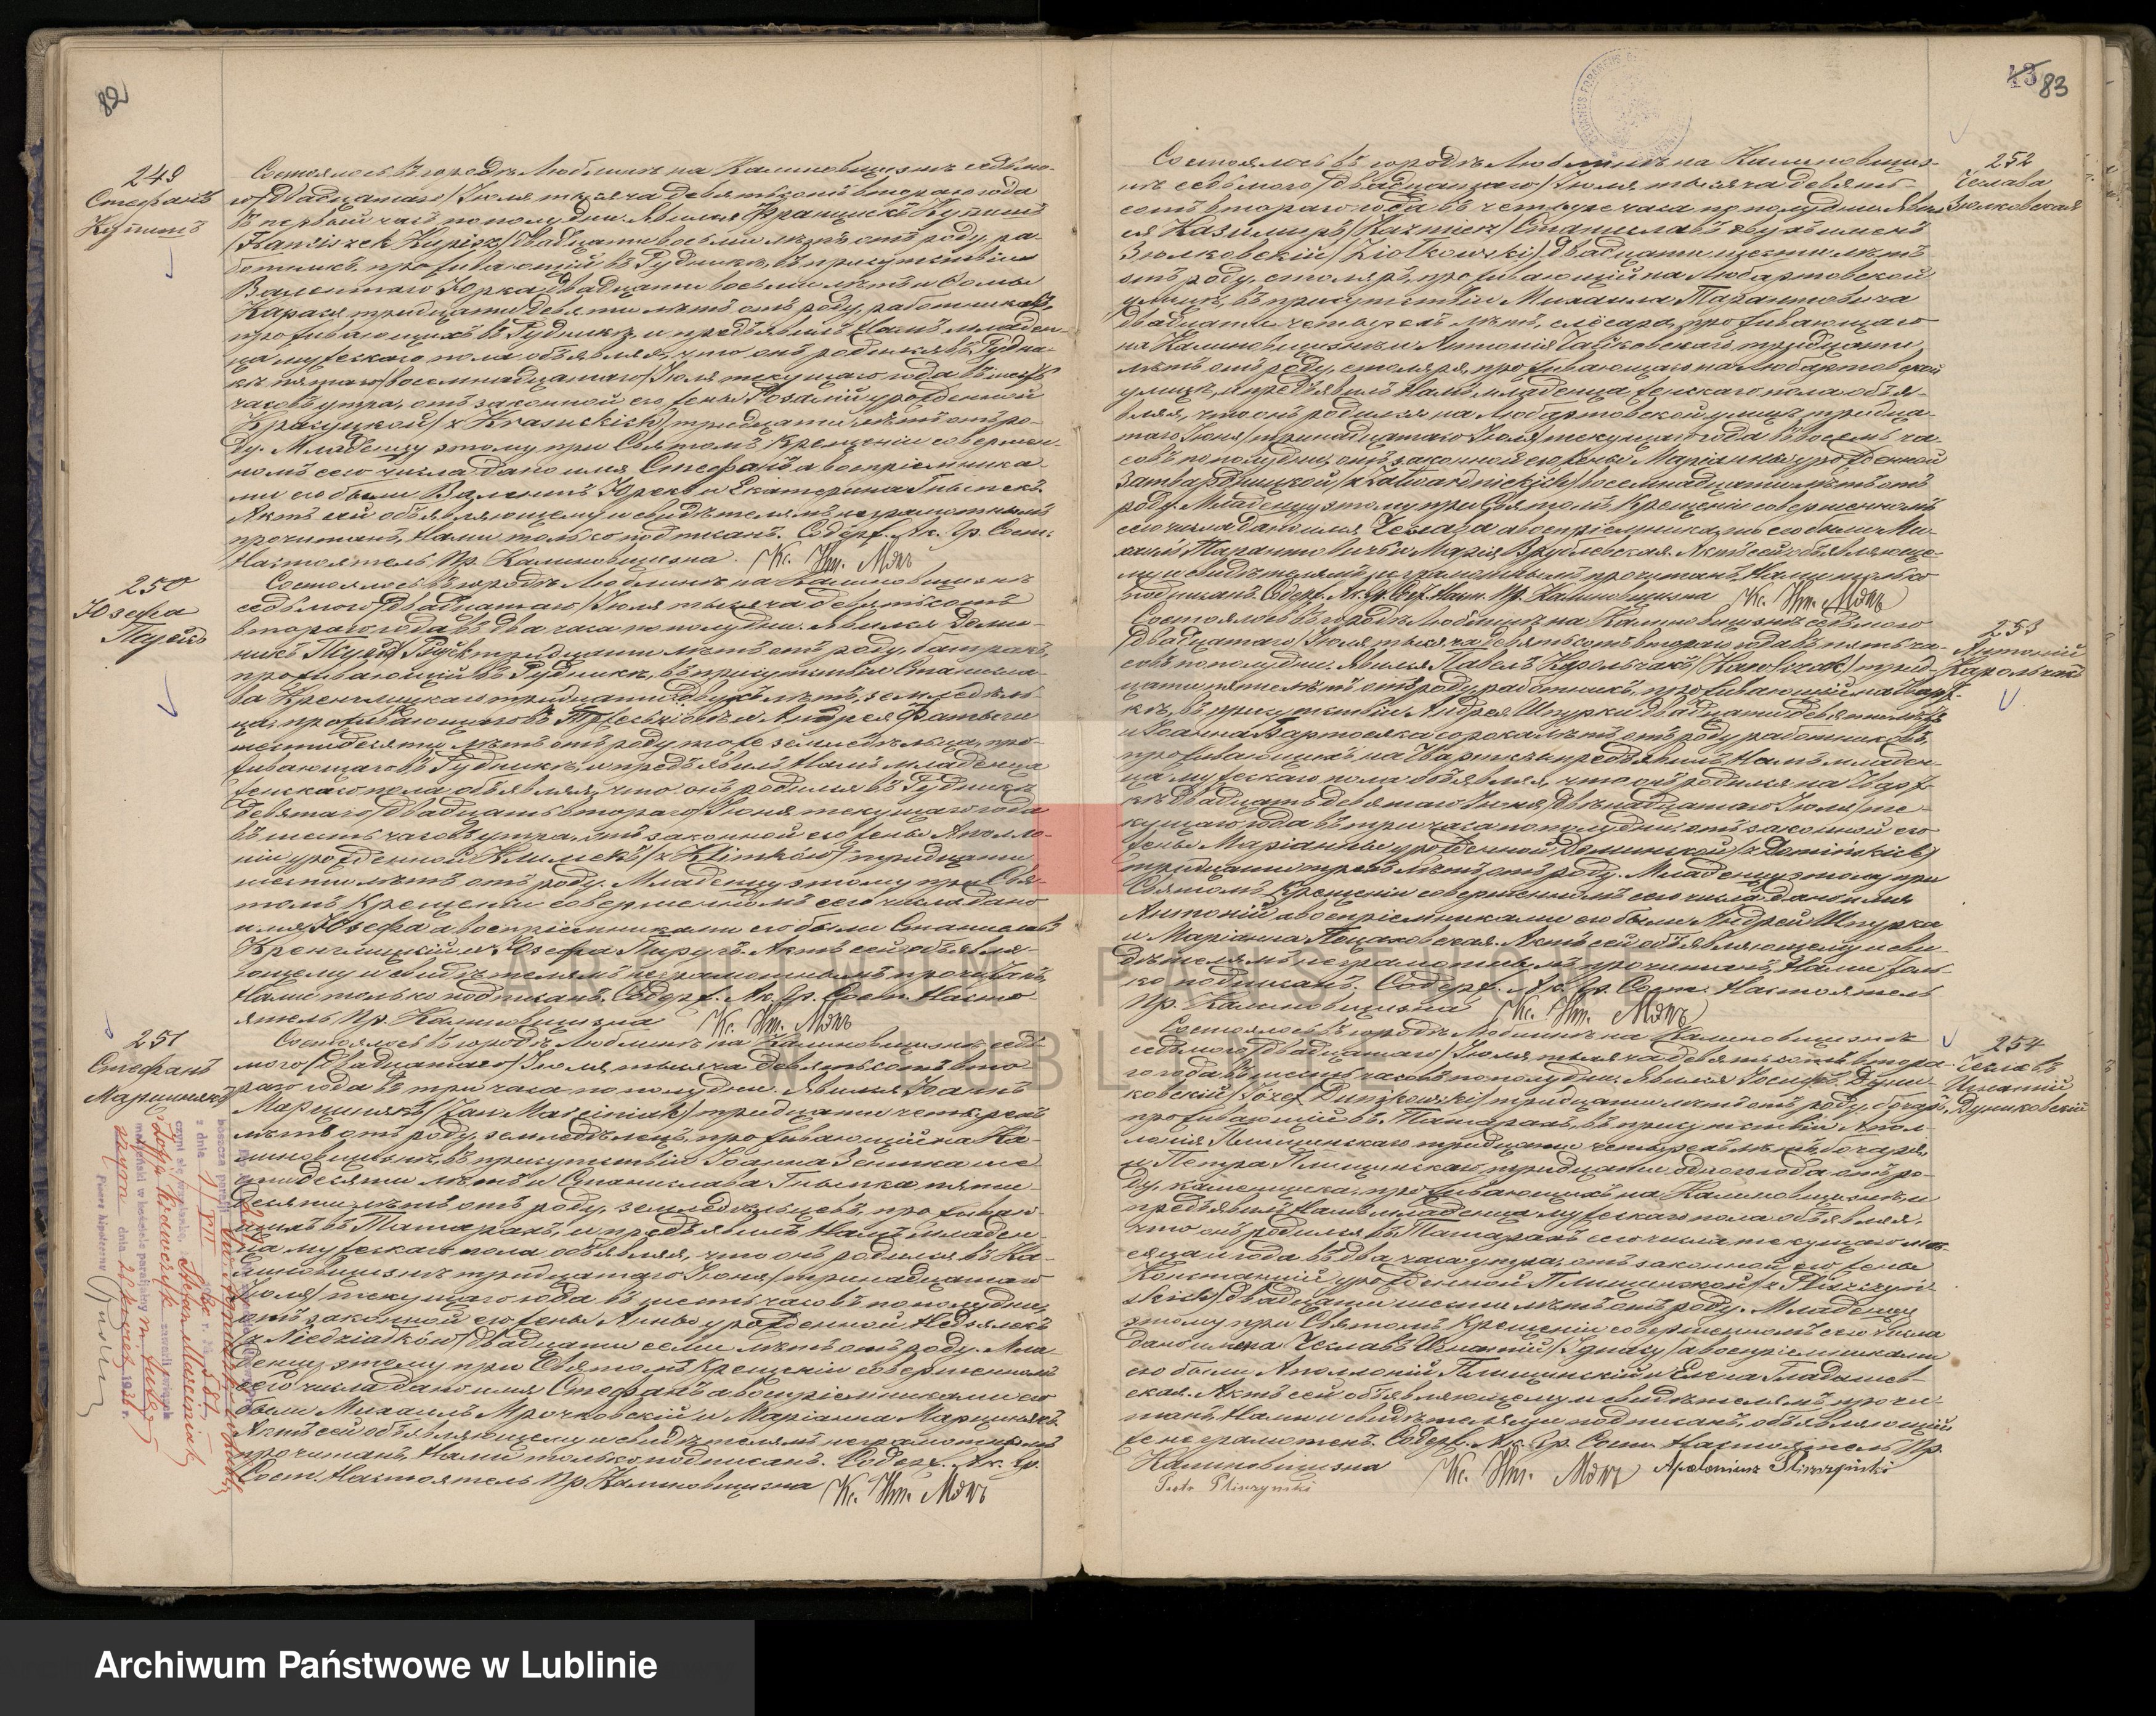 82
249
Стефанъ
Купишъ
Состоялось въ городѣ Люблинѣ на Калиновщизнѣ седьмо-
го/двадцатаго/Іюля тысяча девятьсотъ втораго года
въ первый часъ по полудни. Явился Францискъ Купишъ
/Franciszek Kupisz/двадцати восьми лѣтъ отъ роду, ра-
ботникъ, проживающій въ Рудникѣ, въ присутствіи
Валентаго Юрка двадцати восьми лѣтъ и Фомы
Карася тридцати девяти лѣтъ отъ роду, работниковъ,
проживающихъ въ Рудникѣ, и предъявилъ Намъ младен-
ца мужескаго пола объявляя, что онъ родился въ Рудни-
кѣ пятаго/восемнадцатаго/Іюля текущаго года въ шесть
часовъ утра, отъ законной его жены Розаліи урожденной
Красуцкой/z Krasuckich/тридцати лѣтъ отъ ро-
ду. Младенцу этому при Святомъ Крещеніи совершен-
номъ сего числа дано имя Стефанъ а воспріемника-
ми его были Валентъ Юрекъ и Екатерина Гнысекъ.
Актъ сей объявляющему и свидѣтелямъ неграмотнымъ
прочитанъ, Нами только подписанъ. Содерж. Ак. Гр. Сост.
Настоятель Пр. Калиновщизна. Кс. Ин. Мэнъ
250
Юзефа
Псуекъ
Состоялось въ городѣ Люблинѣ на Калиновщизнѣ
седьмого/двадцатаго/Іюля тысяча девятьсотъ
втораго года въ два часа по полудни. Явился Доми-
никъ Псуекъ тридцати лѣтъ отъ роду, батракъ,
проживающій въ Рудникѣ, въ присутствіи Станисла-
ва Кренглицкаго тридцати двухъ лѣтъ, земледѣль-
ца, проживающаго въ и Андрея
шестидесяти лѣтъ отъ роду тоже земледѣльца, про-
живающаго въ Рудникѣ, и предъявилъ Намъ младенца
женскаго пола объявляя, что онъ родился въ Рудникѣ
девятаго/двадцать втораго/Іюня текущаго года
въ шесть часовъ утра, отъ законной его жены Аполло-
ніи урожденной Климекъ/z Klimków/тридцати
шести лѣтъ отъ роду. Младенцу этому при Свя-
томъ Крещеніи совершенномъ сего числа дано
имя Юзефа а воспріемниками его были Станиславъ
Кренглицкій и Юзефа Пирусъ. Актъ сей объявля-
ющему и свидѣтелямъ неграмотнымъ прочитанъ,
Нами только подписанъ. Содерж. Ак. Гр. Сост. Насто
ятель Пр. Калиновщизна Кс. Ин. Мэнъ
251
Стефанъ
Марциньякъ
Состоялось въ городѣ Люблинѣ на Калиновщизнѣ седь-
мого/двадцатаго/Іюля тысяча девятьсотъ вто-
раго года въ три часа по полудни. Явился Іоаннъ
Марцинякъ/Jan Marciniak/тридцати четырехъ
лѣтъ отъ роду, земледѣлецъ, проживающій на Ка-
линовщизнѣ, въ присутствіи Іоанна Зенника ше-
стидесяти лѣтъ и Станислава Гныпка пяти-
десяти лѣтъ отъ роду, земледѣльцевъ, проживаю-
щихъ въ Татарахъ, и предъявилъ Намъ младен-
ца мужескаго пола объявляя, что онъ родился въ Ка-
линовщизнѣ тридцатаго Іюня/тринадцатаго
Іюля/текущаго года въ шесть часовъ по полудни,
отъ законной его жены Анны урожденной Недзялекъ
/z Niedziałków/двадцати семи лѣтъ отъ роду. Мла-
денцу этому при Святомъ Крещеніи совершенномъ
сего числа дано имя Стефанъ а воспріемниками его
были Михаилъ Мрочковскій и Маріанна Марцинякъ.
Актъ сей объявляющему и свидѣтелямъ неграмотнымъ
прочитанъ, Нами только подписанъ. Содерж. Ак. Гр.
Сост. Настоятель Пр. Калиновщизна Кс. Ин. Мэнъ
z dnia
Stefan Marciniak
małżeński w kościele parafialnym
dnia 1936 r.
Pisarz hipoteczny
43 83
252
Чеслава
Зіолковская
Состоялось въ городѣ Люблинѣ на Калиновщиз-
нѣ седьмого/двадцатаго/Іюля тысяча девять-
сотъ втораго года въ четыре часа по полудни. Явил-
ся Казимиръ/Kazimierz/Станиславъ двухъ именъ
Зіолковскій/Ziołkowski/двадцати шести лѣтъ
отъ роду, столяръ, проживающій на Любартовской
улицѣ, въ присутствіи Михаила Тарантовича
двадцати четырехъ лѣтъ, слесаря, проживающаго
на Калиновщизнѣ и Антонія Чайковскаго тридцати
лѣтъ отъ роду, столяра, проживающаго на Любартовской
улицѣ, и предъявилъ Намъ младенца женскаго пола объя-
вляя, что онъ родился на Любартовской улицѣ тридца-
таго Іюня/тринадцатаго Іюля/текущаго года въ восемь ча-
совъ по полудни, отъ законной его жены Маріанны урожденной
Затвардницкой/z Zatwardnickich/восемнадцати лѣтъ отъ
роду. Младенцу этому при Святомъ Крещеніи совершенномъ
сего числа дано имя Чеслава а воспріемниками его были Ми-
хаилъ Тарантовичъ и Марія Врублевская. Актъ сей объявляюще-
му и свидѣтелямъ неграмотнымъ прочитанъ, Нами только
подписанъ. Содерж. Ак. Гр. Сост. Наст. Пр. Калиновщизна Кс. Ин. Мэнъ
253
Антоній
Карольчакъ
Состоялось въ городѣ Люблинѣ на Калиновщизнѣ седьмого
/двадцатаго/Іюля тысяча девятьсотъ втораго года въ пять ча-
совъ по полудни. Явился Павелъ Карольчакъ/Karolczak/трид-
цати пяти лѣтъ отъ роду, работникъ, проживающій на
кѣ, въ присутствіи Андрея Шпурки двадцати девяти лѣтъ
и Іоанна Бартосяка сорока лѣтъ отъ роду работниковъ,
проживающихъ на и предъявилъ Намъ младен-
ца мужескаго пола объявляя, что онъ родился на
кѣ двадцать девятаго Іюня/двѣнадцатаго Іюля/те-
кущаго года въ три часа по полудни, отъ законной его
жены Маріанны урожденной Доминской/z Domińskich/
тридцати трехъ лѣтъ отъ роду. Младенцу этому при
Святомъ Крещеніи совершенномъ сего числа дано имя
Антоній а воспріемниками его были Андрей Шпурка
и Маріанна Поцаковская. Актъ сей объявляющему и сви-
дѣтелямъ неграмотнымъ прочитанъ, Нами толь-
ко подписанъ. Содерж. Ак. Гр. Сост. Настоятель
Пр. Калиновщизна Кс. Ин. Мэнъ
254
Чеславъ
Игнатій
Дуниковскій
Состоялось въ городѣ Люблинѣ на Калиновщизнѣ
седьмого/двадцатаго/Іюля тысяча девятьсотъ втора-
го года въ шесть часовъ по полудни. Явился Іосифъ Дуни-
ковскій/Józef Dunikowski/тридцати лѣтъ отъ роду, бочаръ,
проживающій въ Татарахъ, въ присутствіи Апол-
лонія Плищинскаго тридцати четырехъ лѣтъ, бочаря,
и Петра Плищинскаго тридцати одного года отъ ро-
ду, каменщика, проживающихъ на Калиновщизнѣ, и
предъявилъ Намъ младенца мужескаго пола объявляя,
что онъ родился въ Татарахъ сего числа текущаго мѣ-
сяца и года въ два часа утра, отъ законной его жены
Констанціи урожденной Плищинской/z Pliszczyń-
skich/двадцати шести лѣтъ отъ роду. Младенцу
этому при Святомъ Крещеніи совершенномъ сего числа
даны имена Чеславъ Игнатій/Ignacy/а воспріемниками
его были Аполлоній Плищинскій и Елена Гладышев-
ская. Актъ сей объявляющему и свидѣтелямъ прочи-
танъ, Нами и свидѣтелями подписанъ, объявляющій
же неграмотенъ. Содерж. Ак. Гр. Сост. Настоятель Пр.
Калиновщизна Кс. Ин. Мэнъ Apoloniusz Pliszczyński
Piotr Pliszczyński
ARCHIWUM PAŃSTWOWE
W LUBLINIE
Archiwum Państwowe w Lublinie